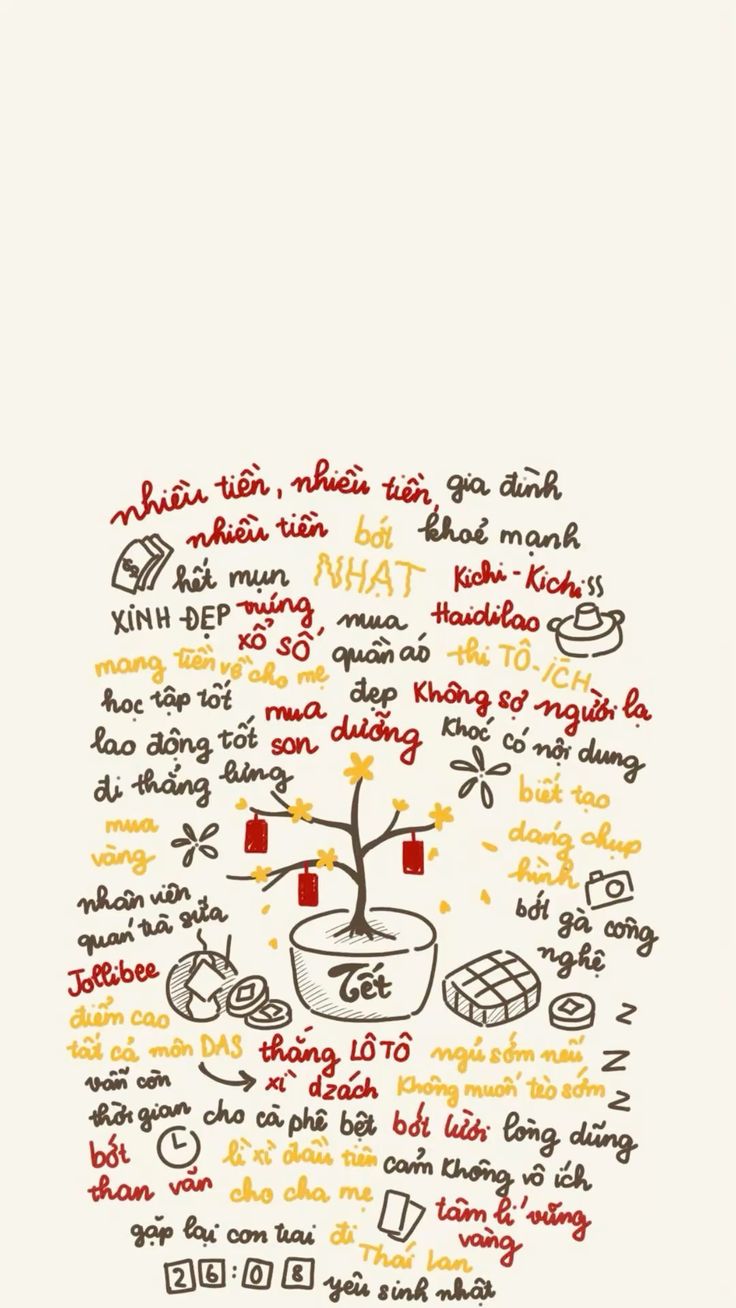 nhiều tiền, nhiều tiền, gia đình
nhiều tiền bớt khoẻ mạnh
$
hết mụn NHẠT Kichi-Kichi
XINH ĐẸP trúng mua Haidilao
xổ số quần áo thi TÔ-ÍCH
mang tiền về cho mẹ
học tập tốt đẹp Không sợ người lạ
lao động tốt mua son dưỡng Khóc có nội dung
đi thẳng lưng
biết tạo
mua dáng chụp
vàng hình
nhân viên bớt gà công
quán trà sữa nghệ
Jollibee Tết
điểm cao Z
tất cả môn DAS thắng LÔ TÔ ngủ sớm nếu Z
vẫn còn xì dzách Không muốn tèo sớm Z
thời gian cho cà phê bệt bớt lười lòng dũng
bớt lì xì đầu tiên cảm Không vô ích
than vãn cho cha mẹ tâm lí vững
vàng
gặp lại con trai đi
Thái Lan
26:08 yêu sinh nhật